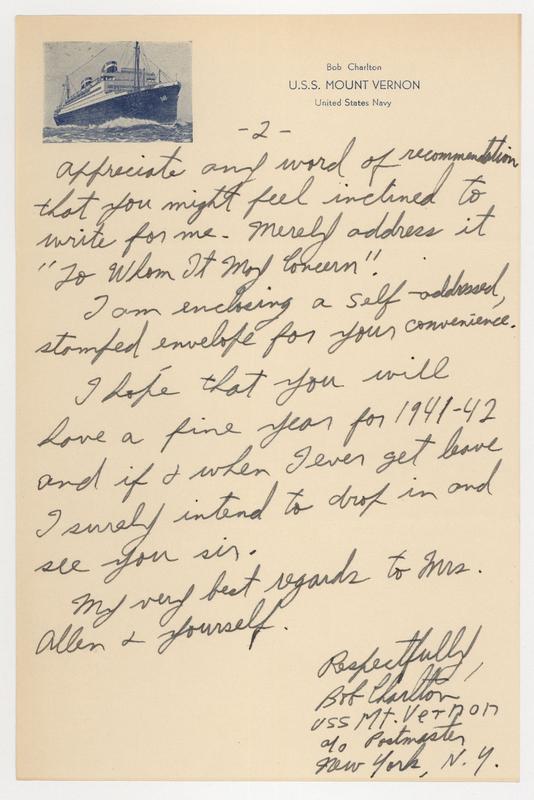 Bob Charlton
U.S.S. MOUNT VERNON
United States Navy
-2-
appreciate any word of recommendation
that you might feel inclined to
write for me. Merely address it
"To Whom It May Concern".
I am enclosing a self-addressed,
stamped envelope for your convenience.
I hope that you will
have a fine year for 1941-42
and if & when I ever get leave
I surely intend to drop in and
see you sir.
My very best regards to Mrs.
Allen & yourself.
Respectfully,
Bob Charlton
USS Mt. Vernon
c/o Postmaster
New York, N. Y.